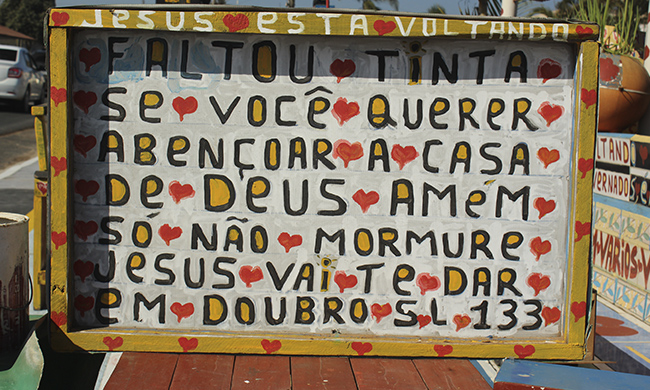 JESUS ESTA VOLTANDO
FALTOU TINTA
SE VOCÊ QUERER
ABENÇOAR A CASA
DE DEUS AMÉM
SÓ NÃO MORMURE
JESUS VAI TE DAR
EM DOUBRO SL 133
LTAND
VERNADO
VARIOS V